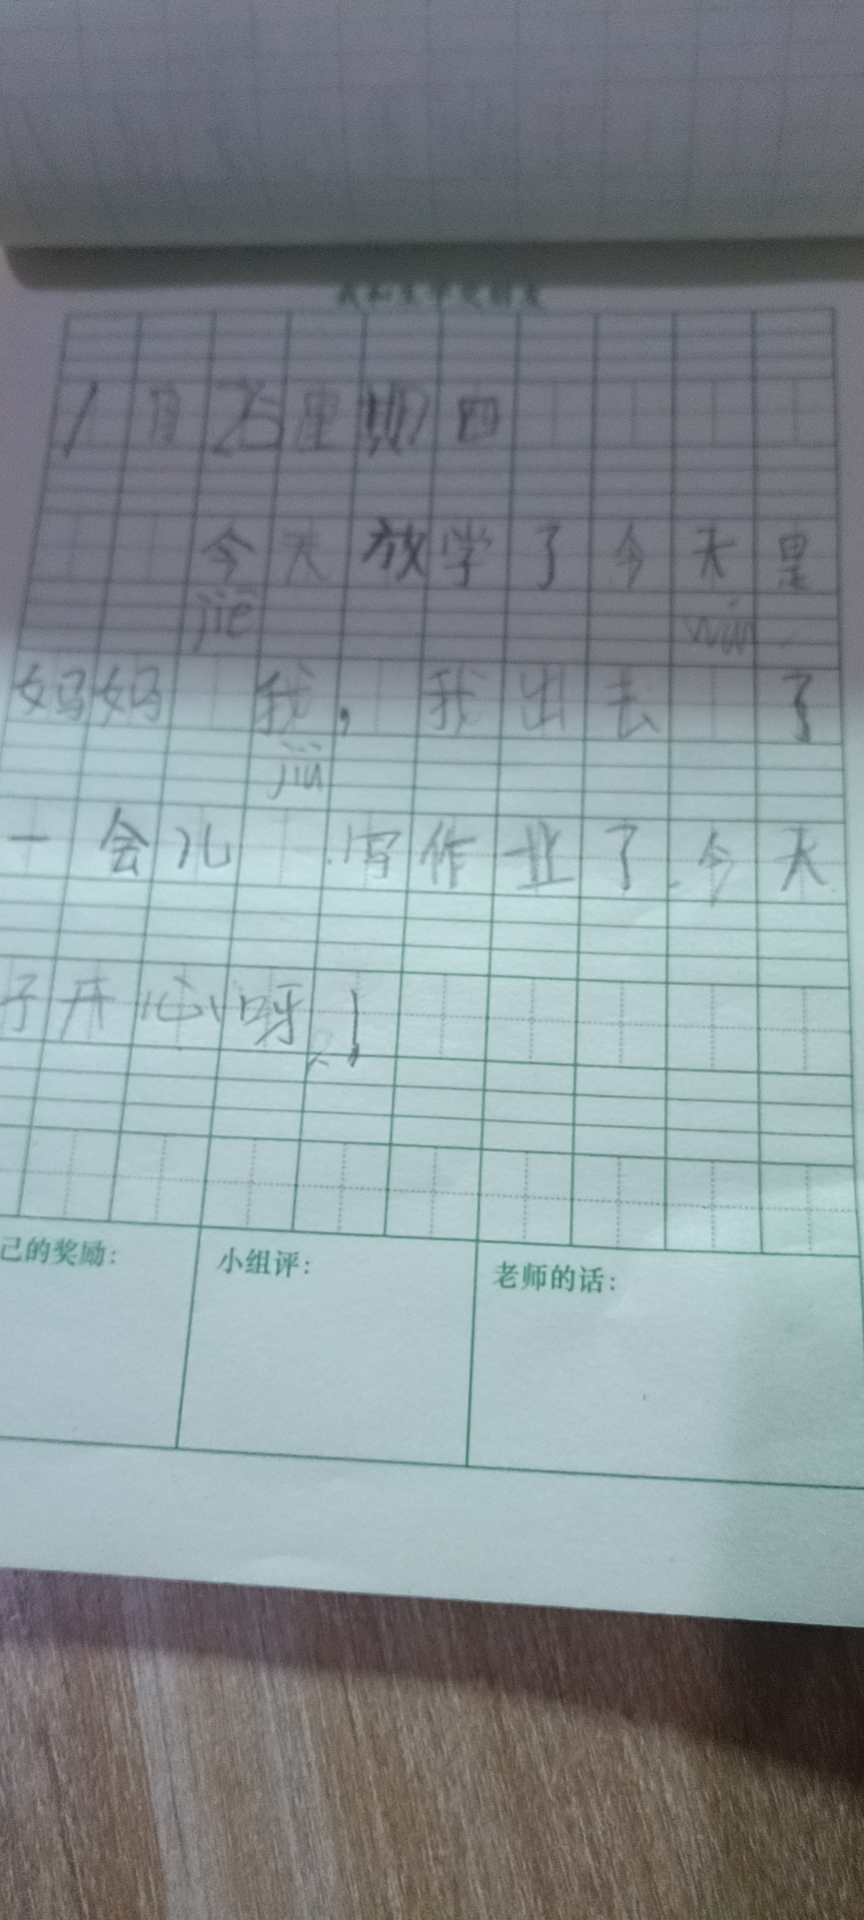 1月25星期四
今天放学了今天是
jiē wán
妈妈 我，我出去 了
jiù
一会儿 写作业了.今天
开心呀!
己的奖励：
小组评：
老师的话：